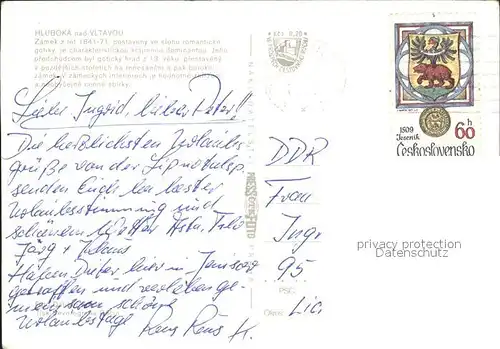 HLUBOKÁ nad VLTAVOU
Zámek z let 1841-71, postavený ve slohu romantizující
gotiky je charakteristickou krajinnou dominantou. Jeho
předchůdcem byl gotický hrad z 13. věku, přestavěný
v pozdějších stoletích na renesanční a pak barokní
zámek. V zámeckých interiérech je hodnotné
Liebe Ingrid, lieber Peter!!
Die herzlichsten Urlaubs-
grüße von der Lipnotalsp.
senden Euch bei bester
Urlaubsstimmung und
schönem Wetter
Jörg + Klaus
Haben Dieter hier in
getroffen und verleben ge-
meinsam schöne
Urlaubstage
Hans
1509
Jeseník
60 h
Československo
DDR
Frau
Ingr
95
PSČ
Okres
Lic
PRESSFOTO
privacy protection
Datenschutz